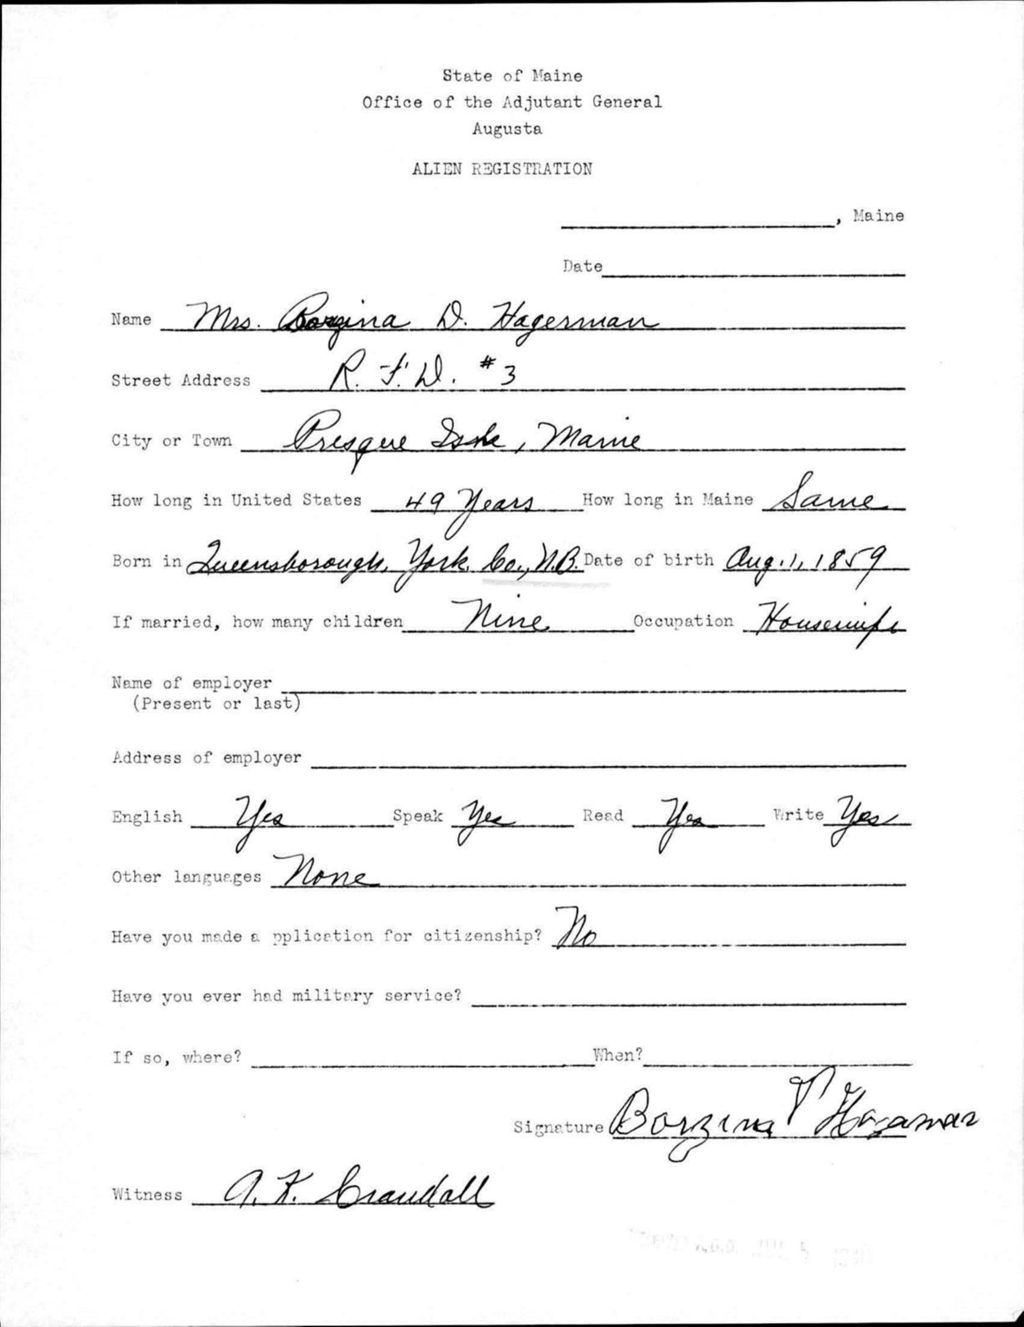 State of Maine
Office of the Adjutant General
Augusta
ALIEN REGISTRATION
, Maine
Date
Name Mrs. Borzina D. Hagerman
Street Address R. F. D. #3
City or Town Presque Isle, Maine
How long in United States 49 Years How long in Maine Same
Born in Queensborough, York Co., N.B. Date of birth Aug. 1, 1859
If married, how many children Nine Occupation Housewife
Name of employer
(Present or last)
Address of employer
English Yes Speak Yes Read Yes Write Yes
Other languages None
Have you made a pplication for citizenship? No
Have you ever had military service?
If so, where? When?
Signature Borzina
Witness A. K. Crandall
A.G.O. JUL 5 1940